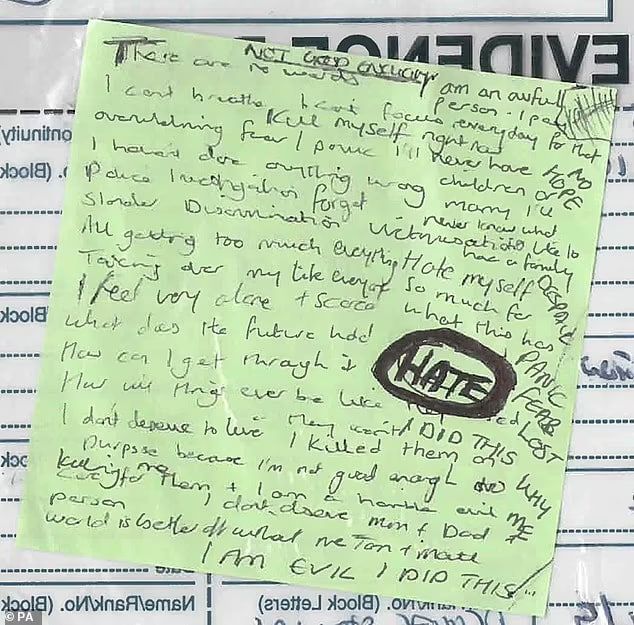 EVIDENCE
NOT GOOD ENOUGH
There are no words
I am an awful person - I pay everyday for that
I can't breathe I can't focus
Kill myself right now
overwhelming fear / panic
I'll never have children or marry I'll never know what it's like to have a family
NO HOPE
I haven't done anything wrong
Police investigation forget
Slander Discrimination Victimisation
All getting too much everything
Taking over my life everyday
Hate myself so much for what this has
DESPAIR
PANIC
FEAR
LOST
I feel very alone + scared
What does the future hold
How can I get through it
HATE
How will things ever be like
they won't
I DID THIS
WHY
ME
I don't deserve to live
I killed them on
purpose because I'm not good enough
care for them + I am a horrible evil
person
I don't deserve mum + Dad
world is better off without me
I AM EVIL I DID THIS
Continuity)
No. (Block
Date
Name/Rank/No. (Block
Block Letters)
© PA